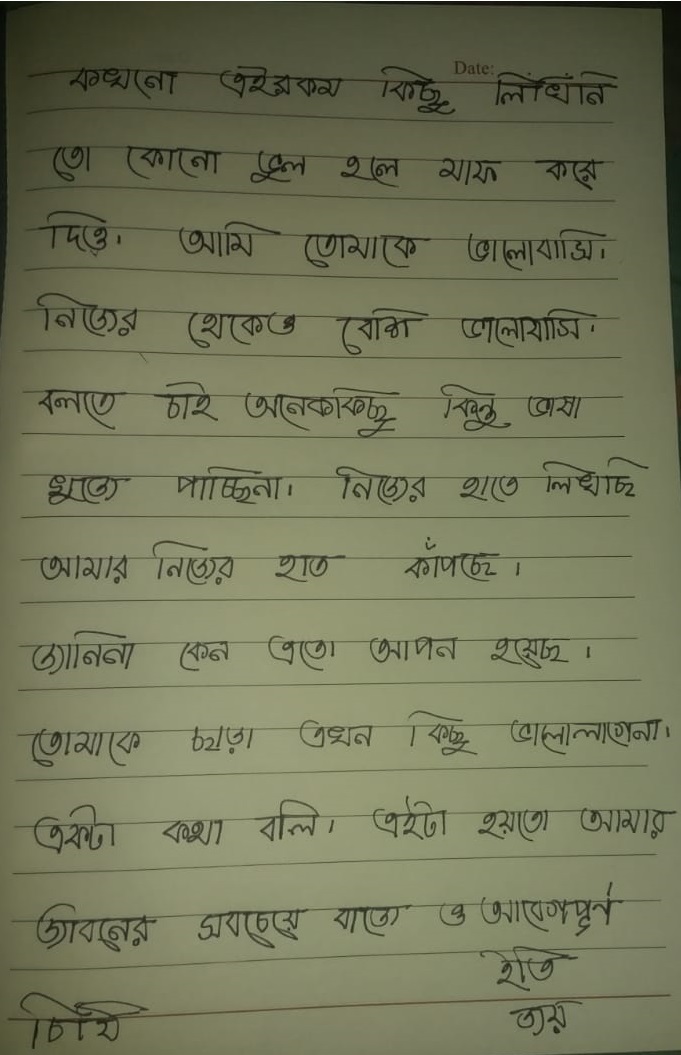 Date:
কখনো এইরকম কিছু লিখিনি
তো কোনো ভুল হলে মাফ করে
দিও। আমি তোমাকে ভালোবাসি।
নিজের থেকেও বেশি ভালোবাসি।
বলতে চাই অনেককিছু কিন্তু ভাষা
খুজে পাচ্ছিনা। নিজের হাতে লিখছি
আমার নিজের হাত কাঁপছে।
জানিনা কেন এতো আপন হয়েছ।
তোমাকে ছাড়া এখন কিছু ভালোলাগেনা।
একটা কথা বলি। এইটা হয়তো আমার
জীবনের সবচেয়ে বাজে ও আবেগপূর্ন
চিঠি
ইতি
জয়